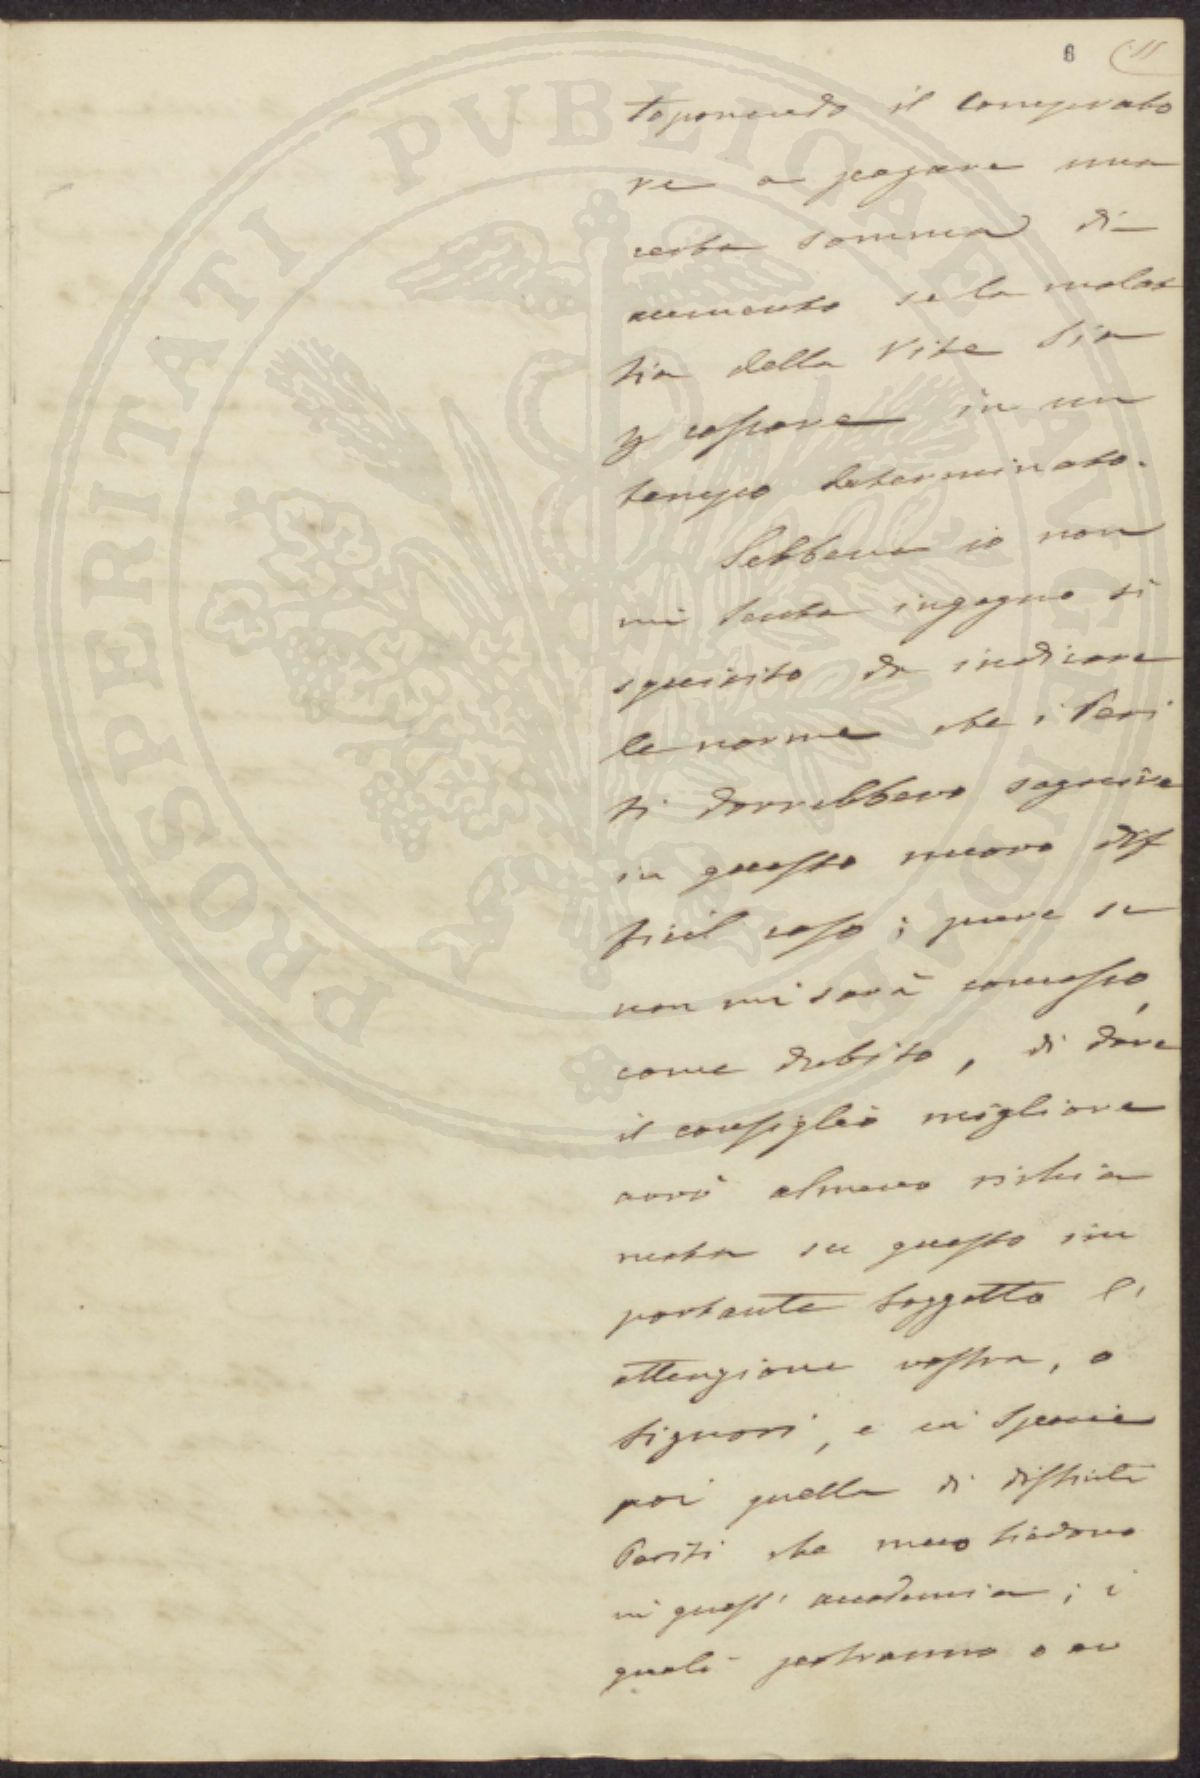 6 11
PROSPERITATI PVBLICAE AVGENDAE
toponendo il comperato
re a pagare una
certa somma di
aumento se la malat
tia della Vite sia
p cessare in un
tempo determinato.
Sebbene io non
mi senta ingegno sì
squisito da indicare
le norme che i Peri
ti dovrebbero seguire
in questo nuovo dif
ficil caso; pure se
non mi sarà concesso,
come dubito, di dare
il consiglio migliore
avrò almeno richia
mata su questo im
portante soggetto l'
attenzione vostra, o
Signori, e in specie
poi quella di distinti
Periti che meco siedono
in quest' accademia; i
quali potranno o av